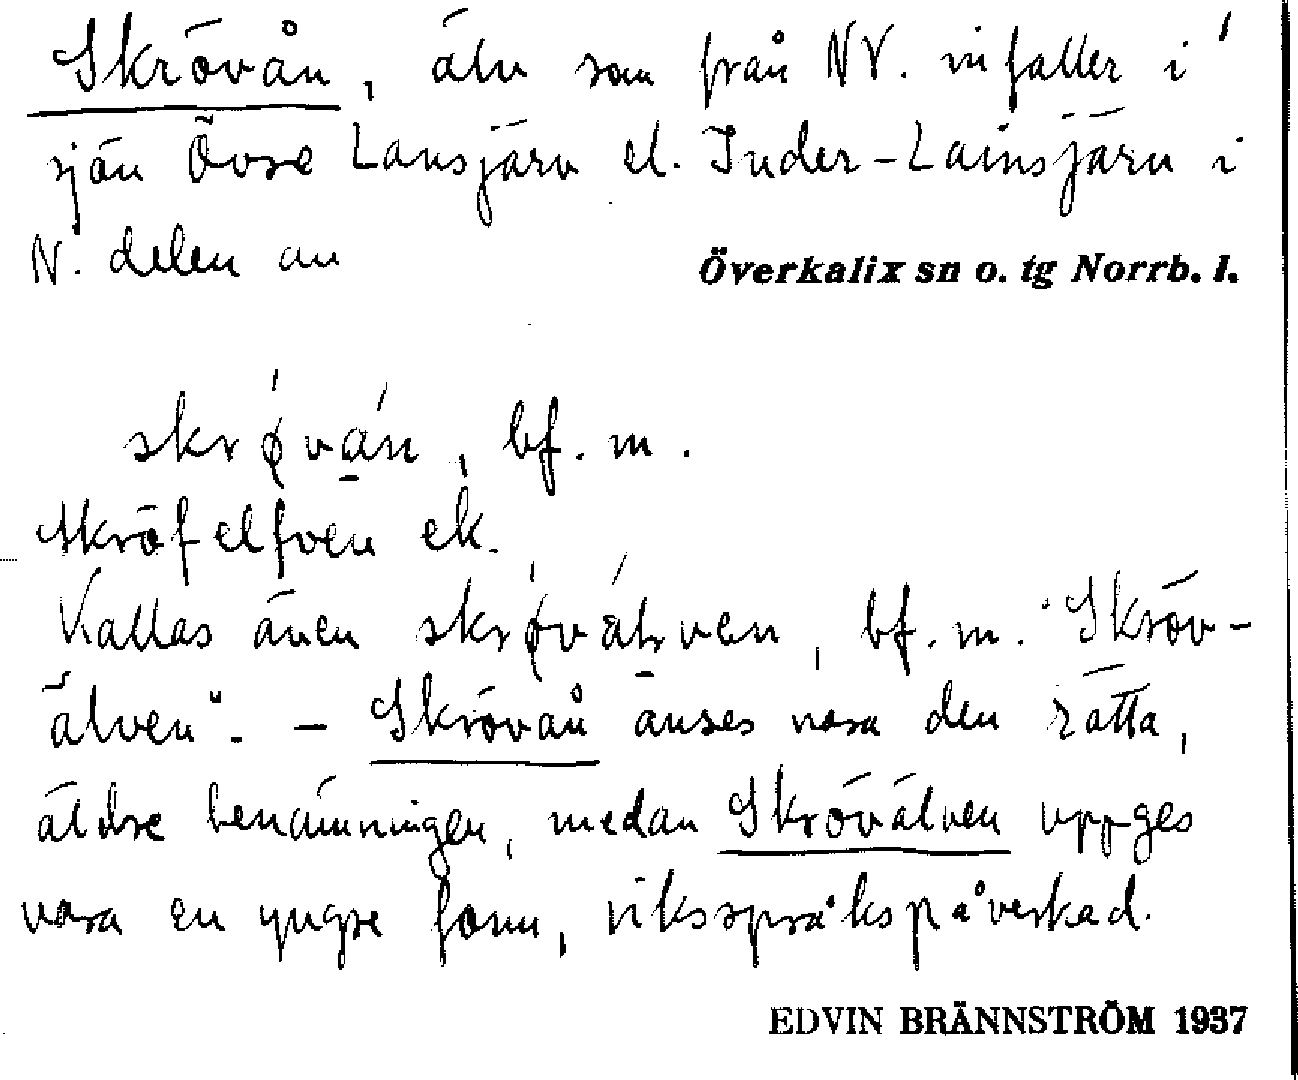 Skrövån, älv som från NV. infaller i
sjön Övre Lansjärv el. Inder-Lainsjärv i
N. delen av
Överkalix sn o. tg Norrb. l.
skrǿván, bf. m.
Skröfelfven ek.
Kallas även skrǿvälven, bf. m. "Skröv-
älven". – Skrövån anses vara den rätta,
äldre benämningen, medan Skrövälven uppges
vara en yngre form, riksspråkspåverkad.
EDVIN BRÄNNSTRÖM 1937